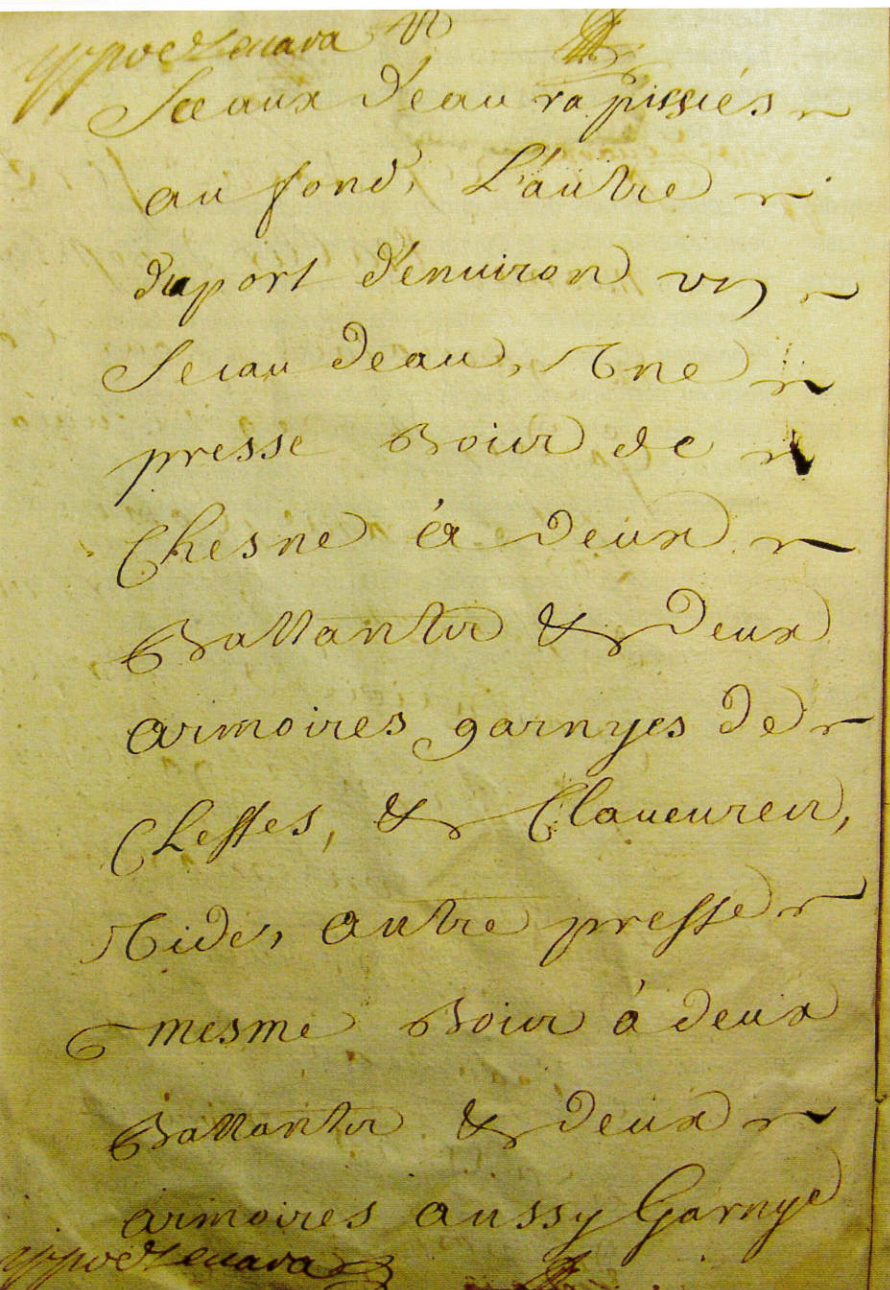 Seeaux d'eau rapissiés
au fond, L'autre
du port d'enuiron vn
Seeau deau, Vne
presse Bois de
Chesne à deux
Battants & deux
armoires garnyes de
Cleffes, & Claueures,
Vide, autre presse
mesme Bois à deux
Battants & deux
armoires aussy Garnye